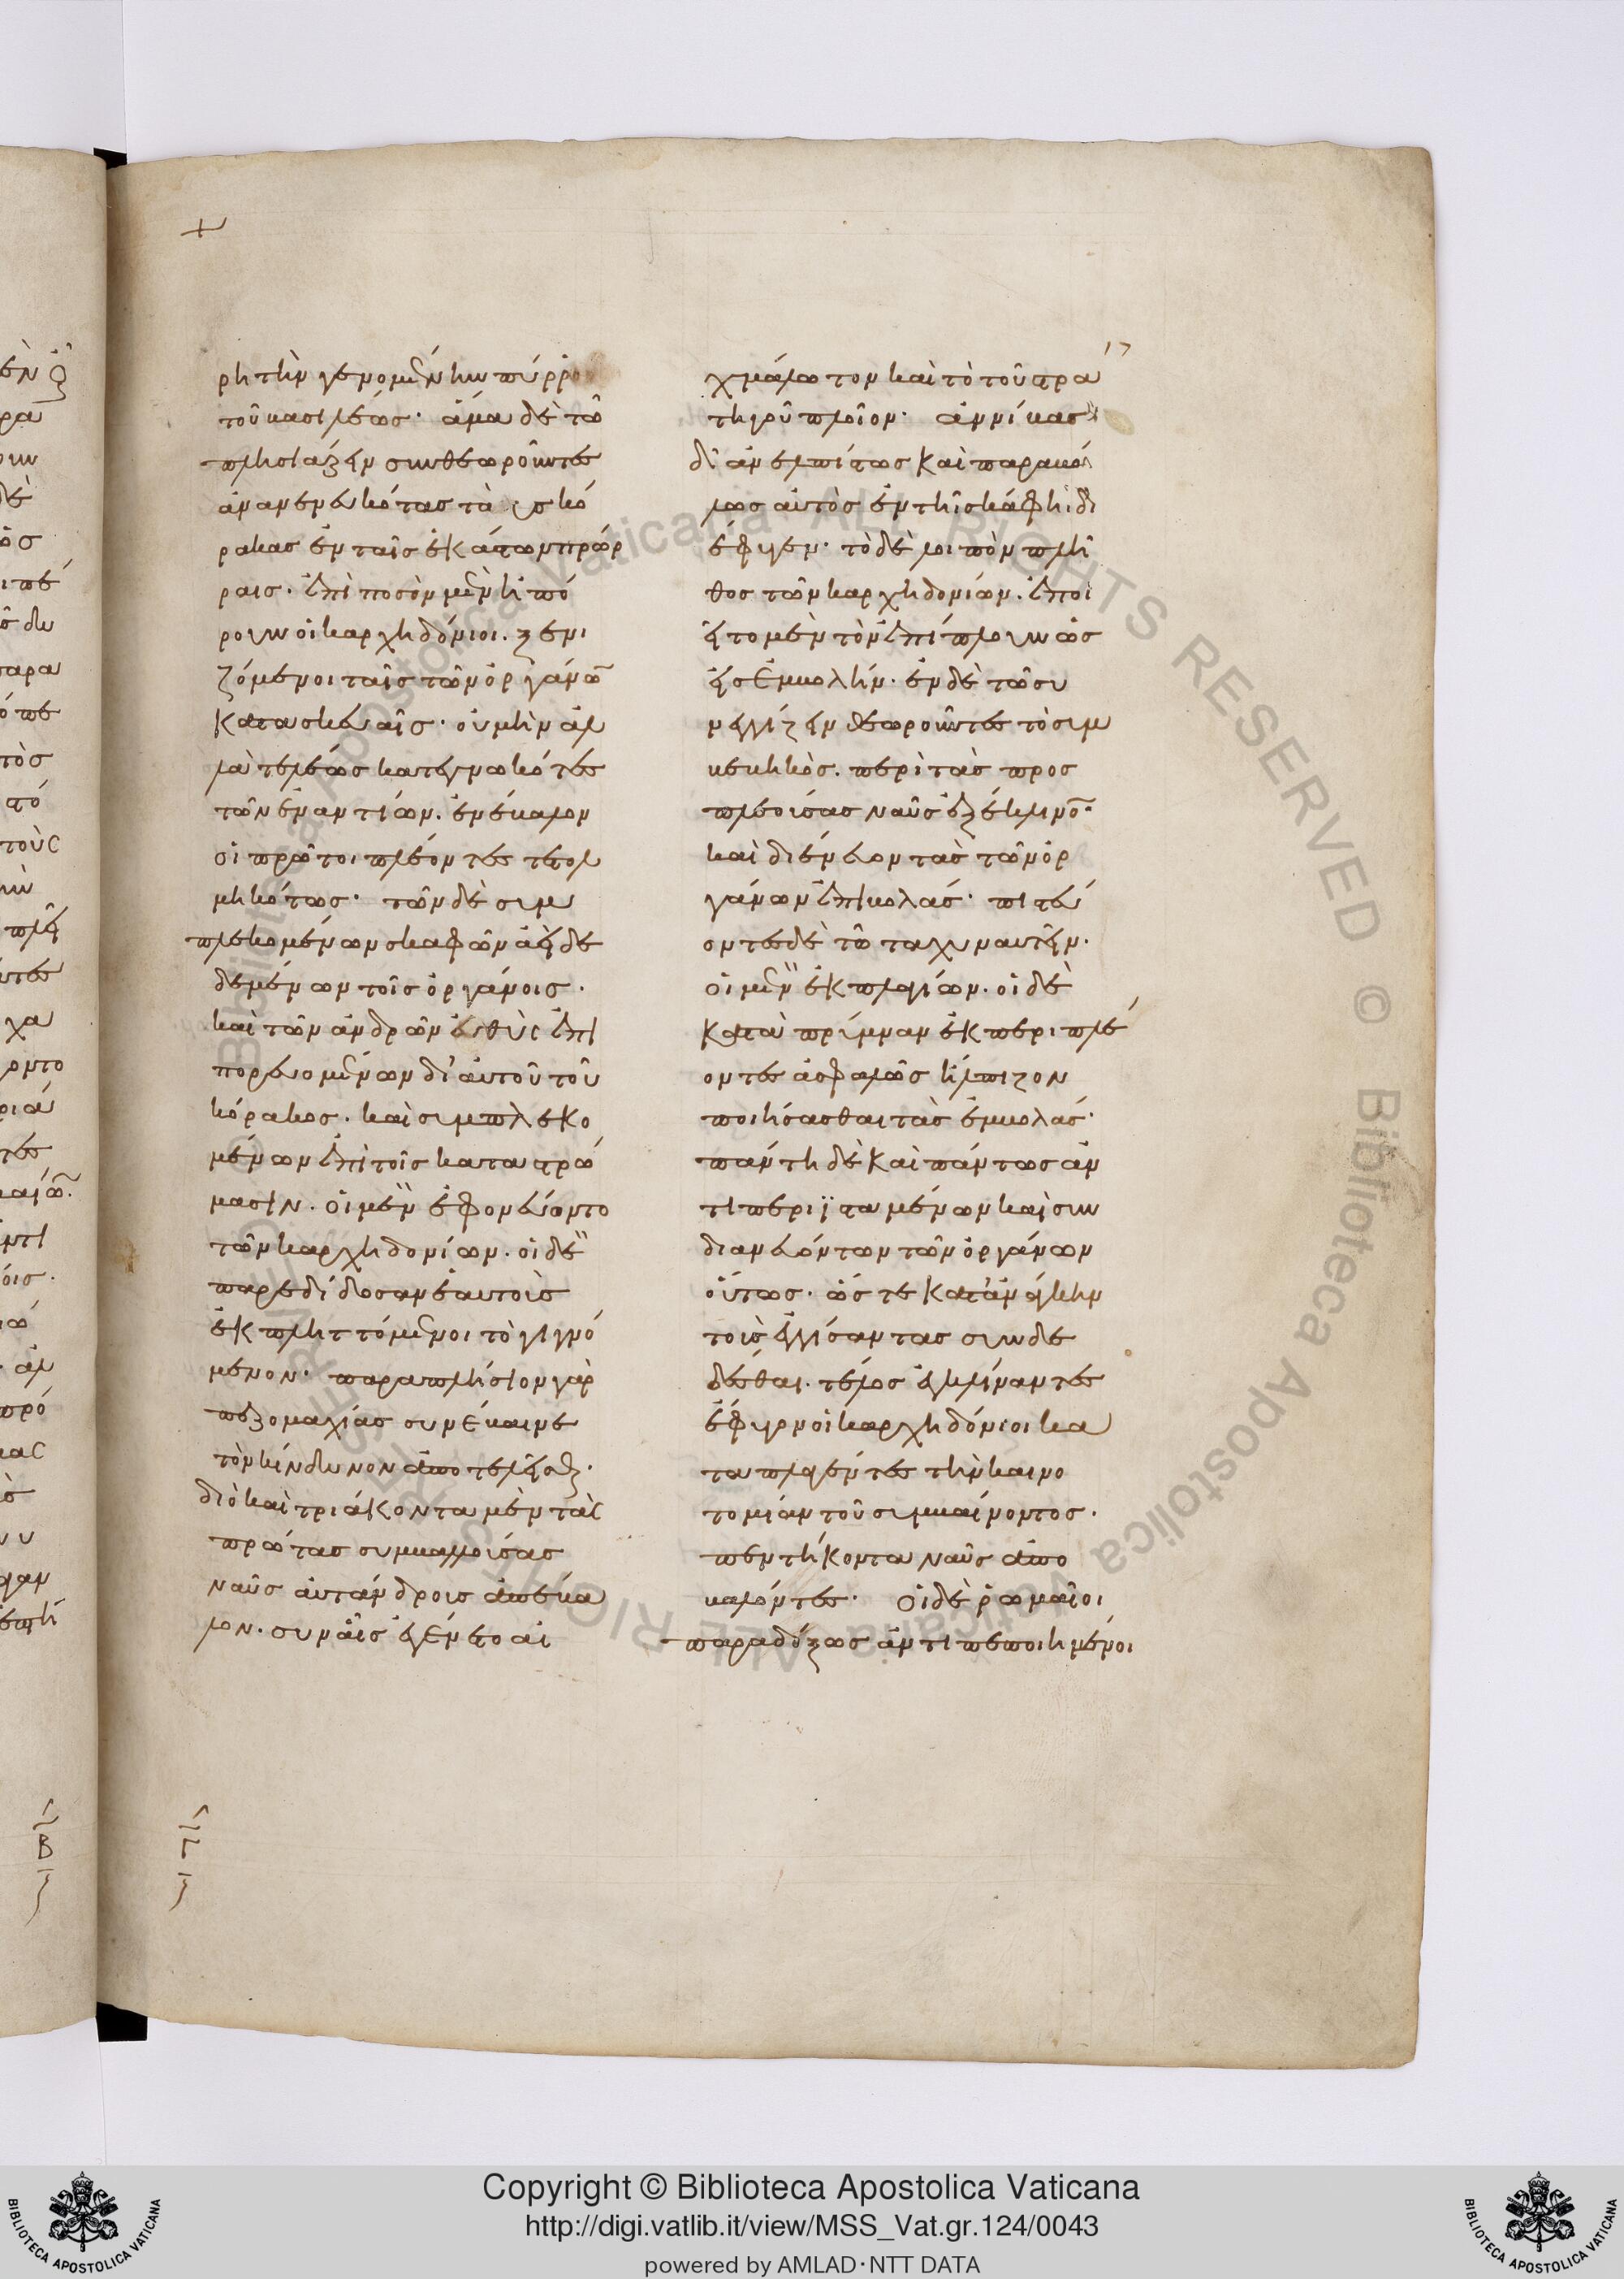 ρη τὴν γενομένην πύρρου
τοῦ βασιλέως· ἅμα δὲ τῶ
πλησιάζειν συνθεωροῦντες
ἀνανενευκότας τοὺς κό
ρακας ἐν ταῖς ἑκάστων πρώρ
ραις. ἐπὶ ποσὸν μὲν ἠπό
ρουν οἱ καρχηδόνιοι. ξενι
ζόμενοι ταῖς τῶν ὀργάνω̄
κατασκευαῖς· οὐ μὴν ἀλ
λὰ τελέως κατεγνωκότες
τῶν ἐναντίων. ἐνέβαλον
οἱ πρῶτοι πλέοντες τετολ
μηκότως· τῶν δὲ συμ
πλεκομένων σκαφῶν ἀεὶ δε
δεμένων τοῖς ὀργάνοις.
καὶ τῶν ἀνδρῶν εὐθὺς ἐπι
πορευομένων δι' αὐτοῦ τοῦ
κόρακος. καὶ συμπλεκο
μένων ἐπὶ τοῖς καταστρώ
μασιν. οἱ μὲν ἐφονεύοντο
τῶν καρχηδονίων. οἱ δὲ
παρεδίδοσαν ἑαυτοὺς
ἐκπληττόμενοι τὸ γιγνό
μενον· παραπλήσιον γὰρ
πεζομαχίας συνέβαινε
τὸν κίνδυνον ἀποτελεῖσθαι.
διὸ καὶ τριάκοντα μὲν τὰς
πρώτας συμβαλλούσας
ναῦς αὐτάνδρους ἀπέβα
λον. σὺν αἷς ἐγένετο αἰ
ιζ
χμάλωτον καὶ τὸ τοῦ στρα
τηγοῦ πλοῖον· ἀννίβας
δ' ἀνελπίστως καὶ παραβό
λως αὐτὸς ἐν τῆ σκάφη δι
έφυγεν· τὸ δὲ λοιπὸν πλῆ
θος τῶν καρχηδονίων. ἐποι
εῖτο μὲν τὸν ἐπίπλουν ὡς
εἰς ἐμβολήν. ἐν δὲ τῶ συ
νεγγίζειν θεωροῦντες τὸ συμ
βεβηκὸς. περὶ τὰς προς
πλεούσας ναῦς ἐξέκλινο̄·
καὶ διένευον τὰς τῶν ὀρ
γάνων ἐπιβολάς· πιστεύ
οντες δὲ τῶ ταχυναυτεῖν.
οἱ μὲν ἐκ πλαγίων. οἱ δὲ
κατὰ πρύμναν ἐκπεριπλέ
οντες ἀσφαλῶς ἤλπιζον
ποιήσασθαι τὰς ἐμβολάς·
πάντη δὲ καὶ πάντως ἀν
τιπεριϊσταμένων καὶ συν
διανευόντων τῶν ὀργάνων
οὕτως. ὥστε κατ' ἀνάγκην
τοὺς ἐγγίσαντας συνδε
δέσθαι. τέλος ἐγκλίναντες
ἔφυγον οἱ καρχηδόνιοι κα
ταπλαγέντες τὴν καινο
τομίαν τοῦ συμβαίνοντος.
πεντήκοντα ναῦς ἀπο
βαλόντες· οἱ δὲ ῥωμαῖοι
παραδόξως ἀντιπεποιημένοι
Copyright © Biblioteca Apostolica Vaticana
http://digi.vatlib.it/view/MSS_Vat.gr.124/0043
powered by AMLAD·NTT DATA